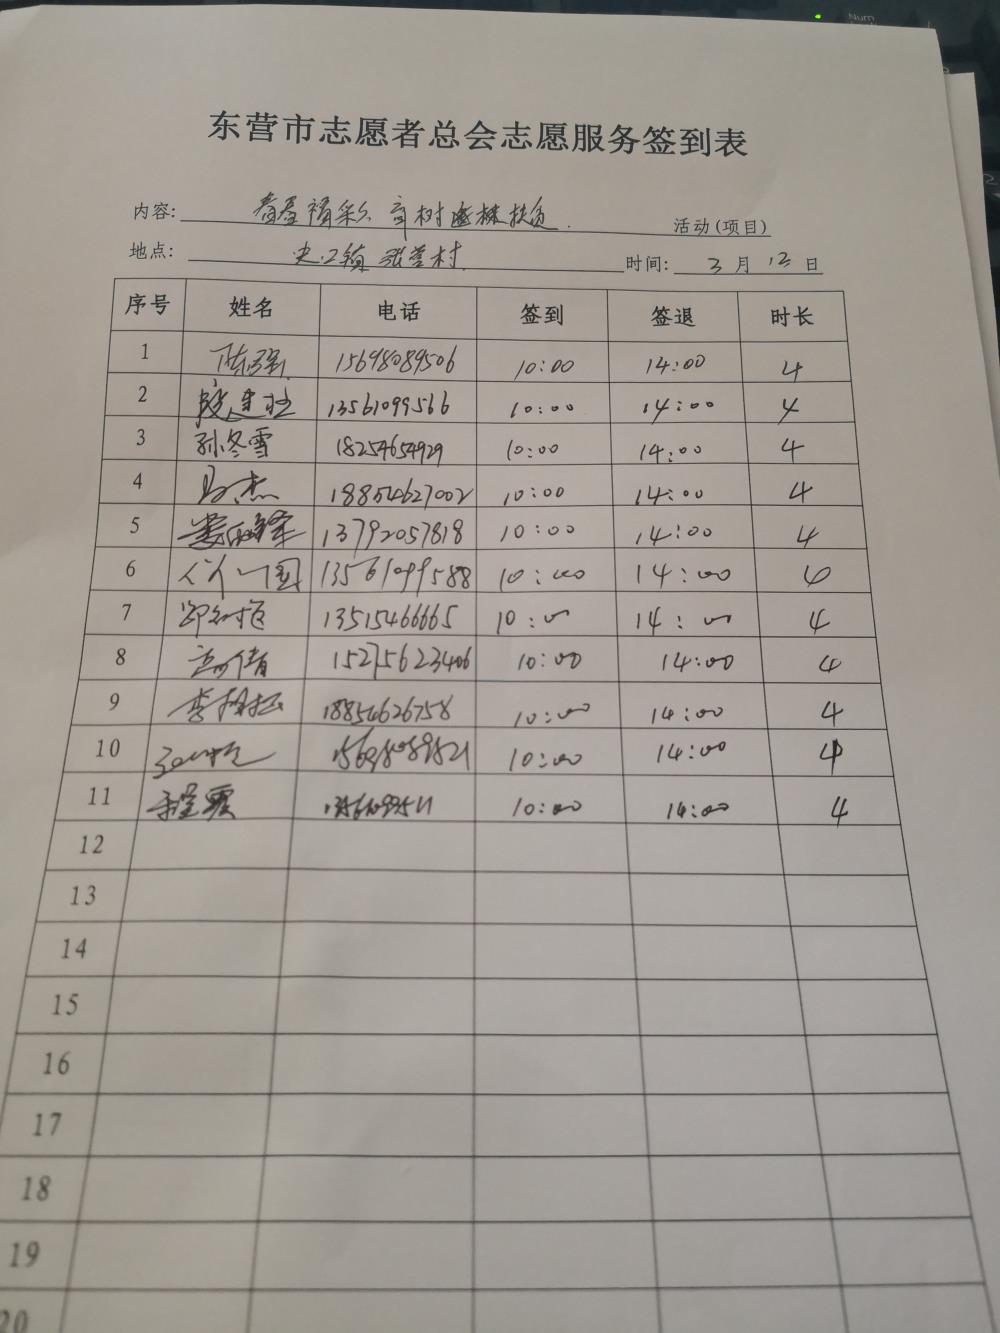 东营市志愿者总会志愿服务签到表
内容: 福彩 树 扶贫 活动(项目)
地点: 史口镇 张营村 时间: 3 月 12 日
序号 姓名 电话 签到 签退 时长
1 陈强 15698089506 10:00 14:00 4
2 13561099566 10:00 14:00 4
3 孙冬雪 18254654929 10:00 14:00 4
4 马杰 18854627002 10:00 14:00 4
5 13792057818 10:00 14:00 4
6 13561099588 10:00 14:00 4
7 13515466665 10:00 14:00 4
8 15275623406 10:00 14:00 4
9 18854626758 10:00 14:00 4
10 10:00 14:00 4
11 10:00 14:00 4
12
13
14
15
16
17
18
19
20